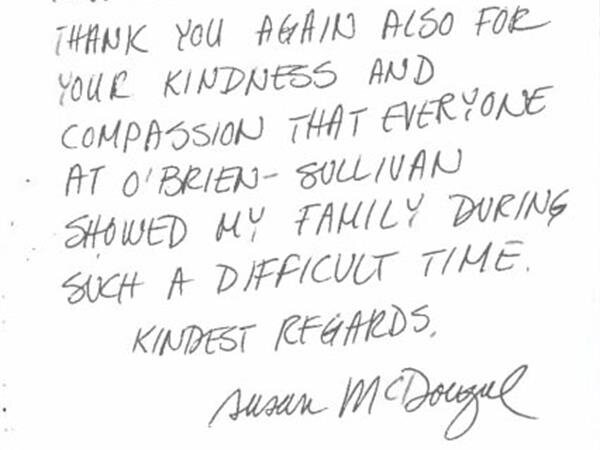 THANK YOU AGAIN ALSO FOR
YOUR KINDNESS AND
COMPASSION THAT EVERYONE
AT O'BRIEN-SULLIVAN
SHOWED MY FAMILY DURING
SUCH A DIFFICULT TIME.
KINDEST REGARDS,
Susan McDougal